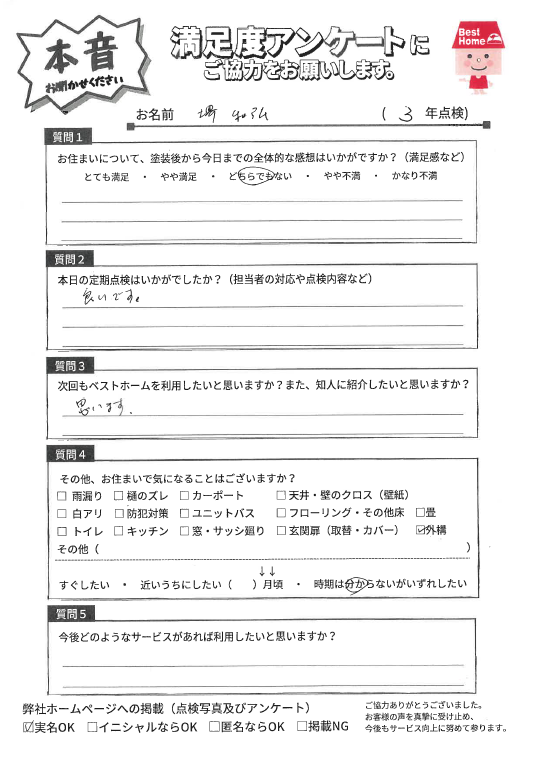 本音
お聞かせください
満足度アンケートに
ご協力をお願いします。
Best Home
お名前 堺 (3 年点検)
質問1
お住まいについて、塗装後から今日までの全体的な感想はいかがですか？（満足感など）
とても満足 ・ やや満足 ・ どちらでもない ・ やや不満 ・ かなり不満
質問2
本日の定期点検はいかがでしたか？（担当者の対応や点検内容など）
良いです。
質問3
次回もベストホームを利用したいと思いますか？また、知人に紹介したいと思いますか？
思います.
質問4
その他、お住まいで気になることはございますか？
☐ 雨漏り ☐ 樋のズレ ☐ カーポート ☐ 天井・壁のクロス（壁紙）
☐ 白アリ ☐ 防犯対策 ☐ ユニットバス ☐ フローリング・その他床 ☐畳
☐ トイレ ☐ キッチン ☐ 窓・サッシ廻り ☐ 玄関扉（取替・カバー） ☑外構
その他（ ）
↓↓
すぐしたい ・ 近いうちにしたい（ ）月頃 ・ 時期は分からないがいずれしたい
質問5
今後どのようなサービスがあれば利用したいと思いますか？
弊社ホームページへの掲載（点検写真及びアンケート）
☑実名OK ☐イニシャルならOK ☐匿名ならOK ☐掲載NG
ご協力ありがとうございました。
お客様の声を真摯に受け止め、
今後もサービス向上に努めて参ります。